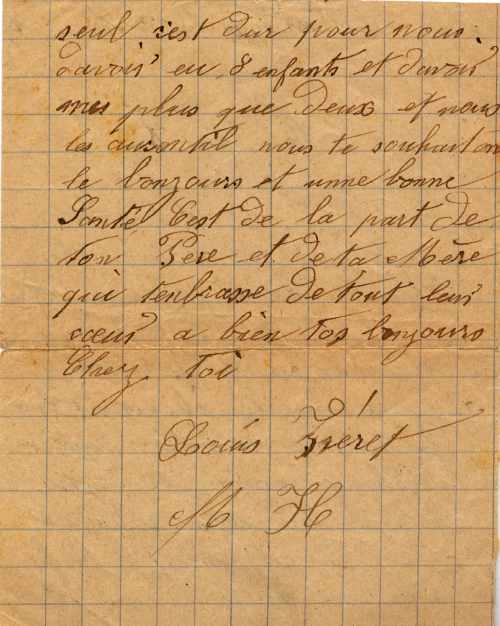 seul c'est dur pour nous.
davoir eu 8 enfants et davoir
mes plus que deux et nous
les auront il nous te souhaiton
le bonzours et unne bonne
Santé Cest de la part de
ton Père et de ta Mère
qui tenbrasse de tout leur
cœur a bien tos bonzours
Chez toi
Louis Fréret
M H